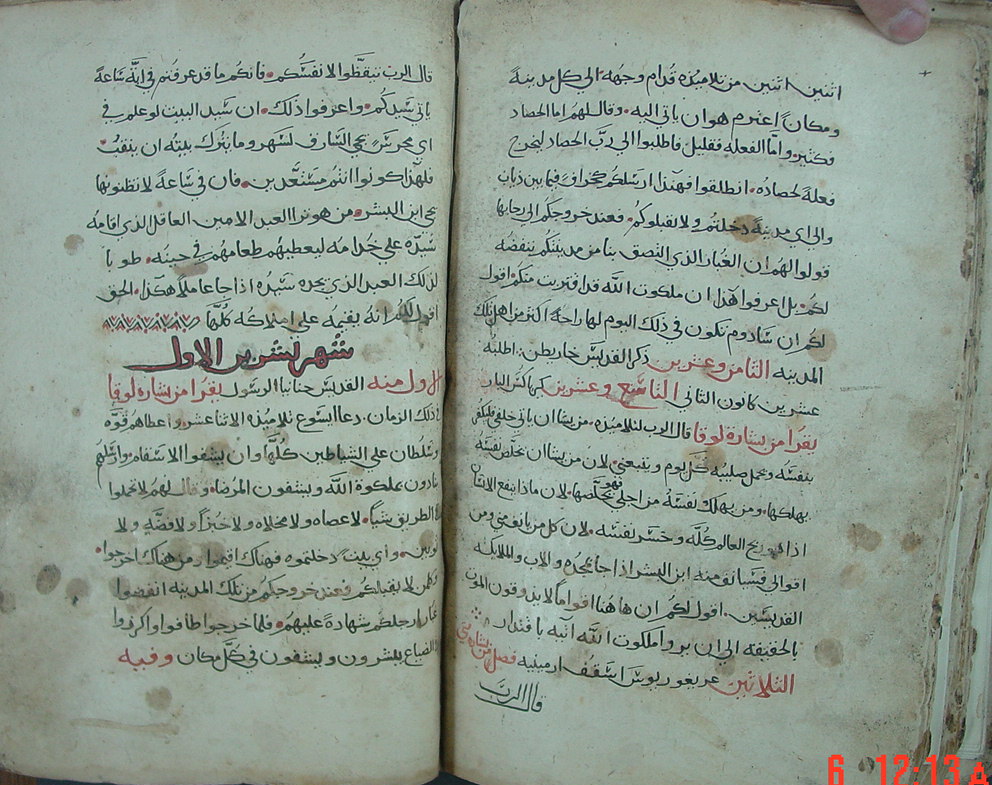 اثنين اثنين من تلاميذه قدام وجهه الى كل مدينة
ومكان اعتزم هو ان ياتي اليه. وقال لهم اما الحصاد
فكثير. واما الفعله فقليل فاطلبوا الى رب الحصاد ليخرج
فعلة لحصاده. انطلقوا فهنذا ارسلكم كخراف فيما بين دياب
والى اي مدينة دخلتم ولا تقبلوكم. فعند خروجكم الى رحابها
قولوا لهم ان الغبار الذي التصق بنا من مدينتكم ننفضه
لكم. بل اعرفوا هذا ان ملكوت الله قد اقتربت منكم. اقول
لكم ان سادوم تكون في ذلك اليوم لها راحة اكثر من اهل تلك
المدينه الثامن وعشرين ذكر القديس خاريطن. اطلبه
عشرين كانون الثاني التاسع وعشرين
يقرا من بشارة لوقا قال الرب لتلاميذه. من يشا ان ياتي خلفي فليكفر
بنفسه ويحمل صليبه كل يوم ويتبعني. لان من يشا ان يخلص نفسه
يهلكها. ومن يهلك نفسه من اجلي فهو يخلصها. لان ماذا ينفع الانسان
اذا هو ربح العالم كله وخسر نفسه. لان كل من يانف مني ومن
اقوالي فسيانف منه ابن البشر اذا جا بمجده والاب والملايكه
القديسين. اقول لكم ان هاهنا اقواما لا يذوقون الموت
بالحقيقه الى ان يروا ملكوت الله اتيه باقتدار
الثلاثين غريغوريوس اسقف ارمينيه فصل من بشارة متى
قال الرب
قال الرب تيقظوا لانفسكم. فانكم ما قد عرفتم في اية ساعة
ياتي سيدكم. واعرفوا ذلك. ان سيد البيت لو علم في
اي محرس يجي السارق لسهر وما يترك بيته ان ينقب.
فلهذا كونوا انتم مستعدين. فان في ساعة لا تظنونها
يجي ابن البشر. من هو ترا العبد الامين العاقل الذي اقامه
سيده على خدامه ليعطيهم طعامهم في حينه. طوبا
لذلك العبد الذي يجده سيده اذا جا عاملا هكذا. الحق
اقول لكم انه يقيمه على املاكه كلها
شهر تشرين الاول
اول منه القديس حنانيا الرسول يقرا من بشارة لوقا
في ذلك الزمان. دعا ايسوع تلاميذه الاثناعشر. واعطاهم قوة
وسلطان على الشياطين كلها وان يشفوا الاسقام. وارسلهم
ينادون بملكوة الله ويشفون المرضا. وقال لهم لا تحملوا
في الطريق شيا. لا عصاه ولا مخلاه ولا خبزا ولا فضه ولا
ثوبين. واي بيت دخلتموه فهناك اقيموا. ومن هناك اخرجوا.
وكلمن لا يقبلكم فعند خروجكم من تلك المدينه انفضوا
غبار ارجلكم شهادة عليهم. فلما خرجوا طافوا واكرزوا
في الضياع يبشرون ويشفون في كل مكان وفيه